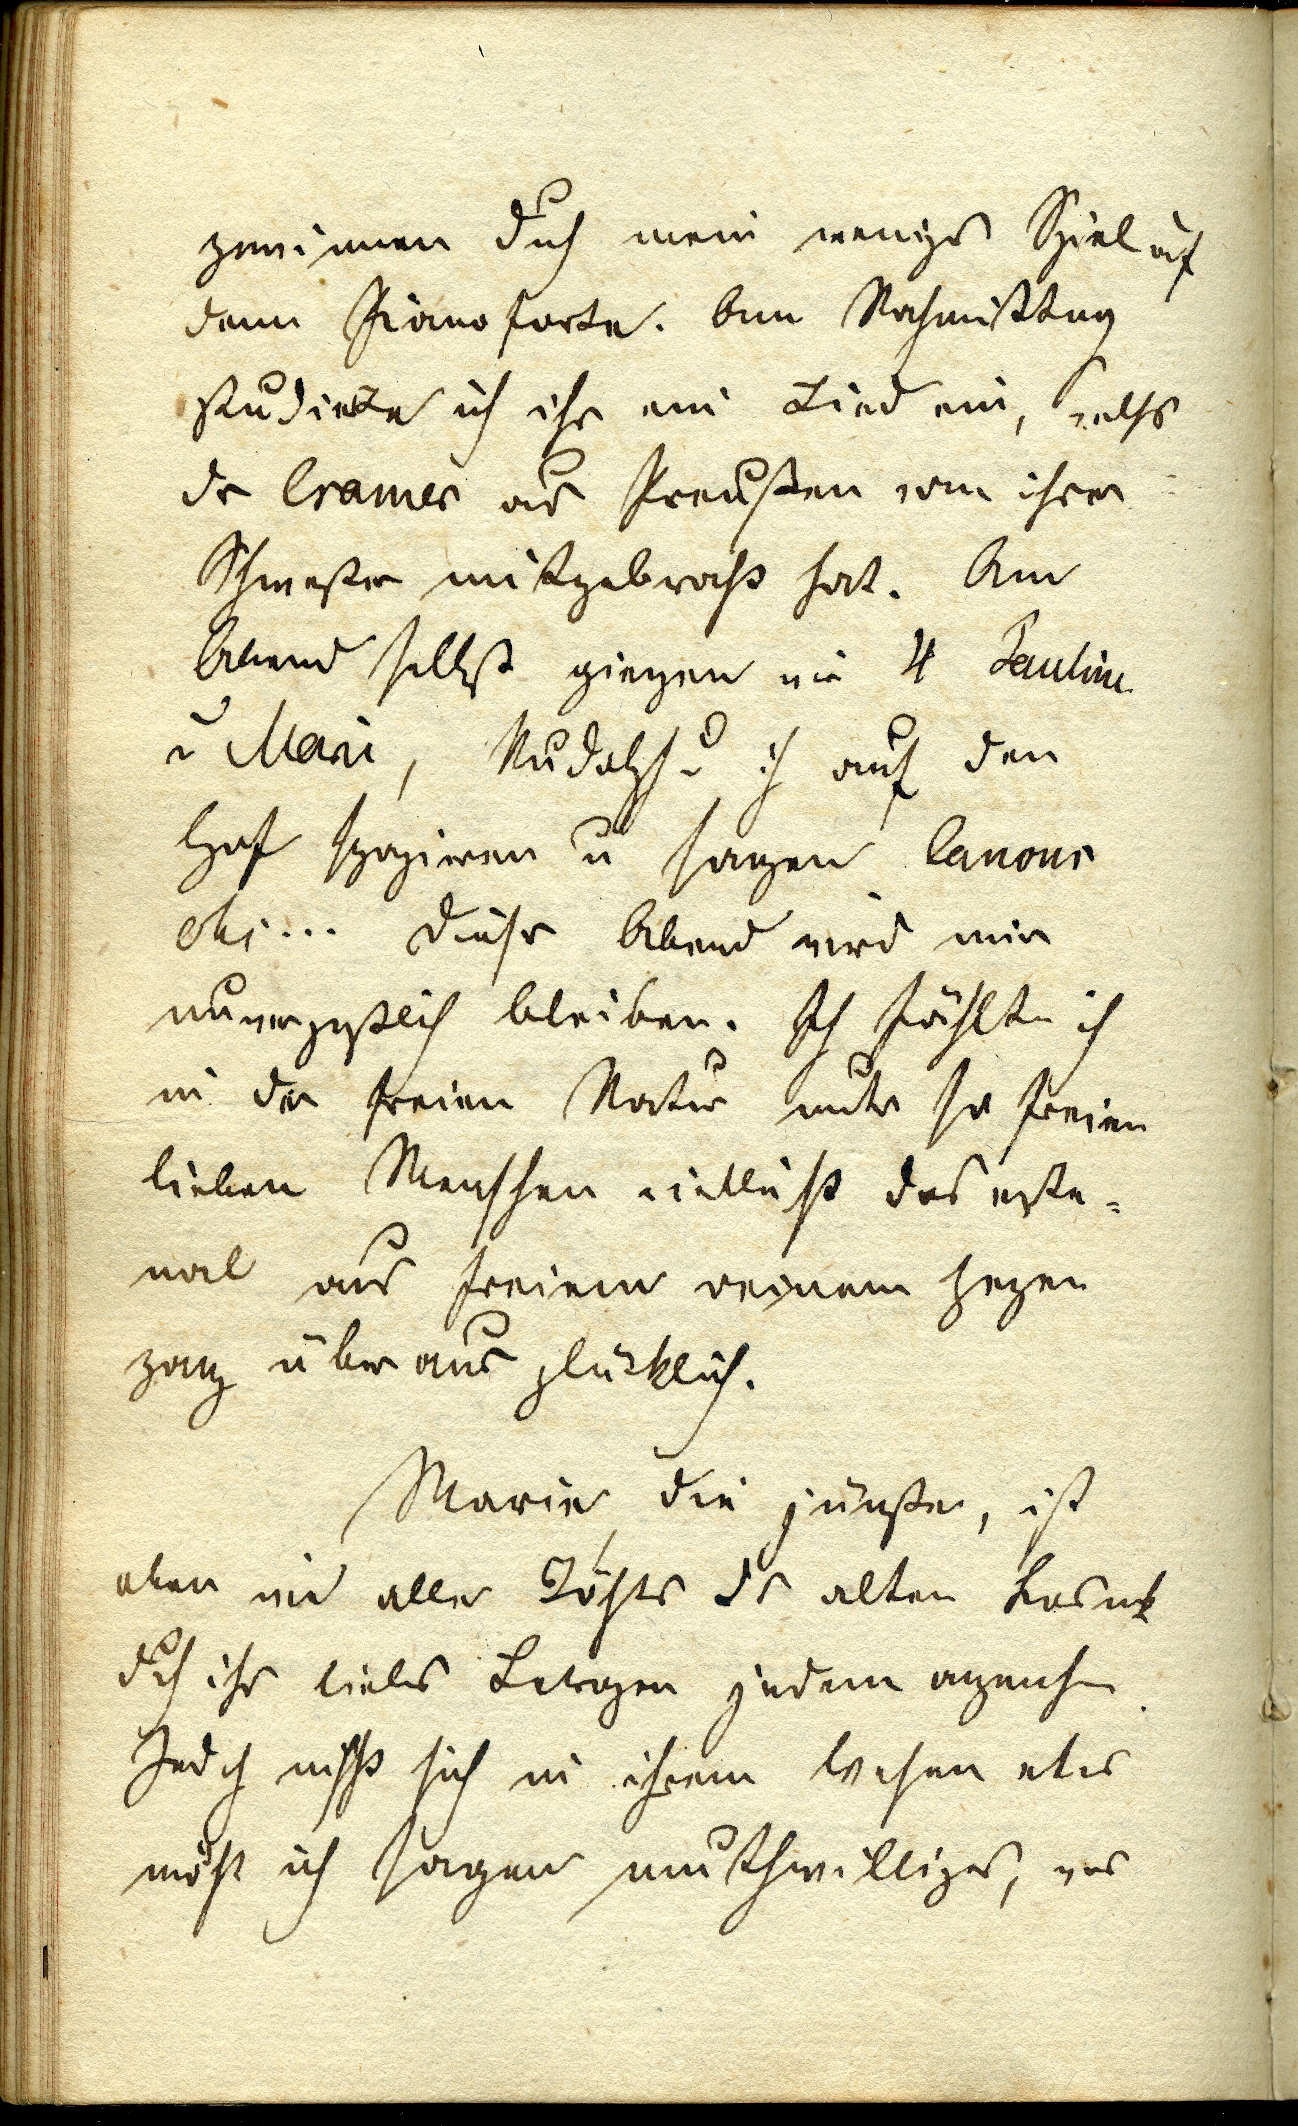 gewinnen durch mein weniges Spiel auf
dem Pianoforte. Am Nachmittag
studierte ich ihr ein Lied ein, welches
der Cramer aus Preußen von ihrer
Schwester mitgebracht hat. Am
Abend selbst giengen wir 4 Pauline
u Marie, Rudolph u ich auf den
Hof spazieren u sangen Canons
etc... Dieser Abend wird mir
unvergeßlich bleiben. Ich fühlte ich
in der freien Natur unter so freien
lieben Menschen vielleicht das erste=
mal aus freiem reinem Herzen
ganz überaus glücklich.
Marie, die jüngste, ist
eben wie alle Töchter des alten
durch ihr liebes Betragen jedem angenehm.
Jedoch mischt sich in ihrem Wesen etwas
möcht ich sagen muthwilliges, was